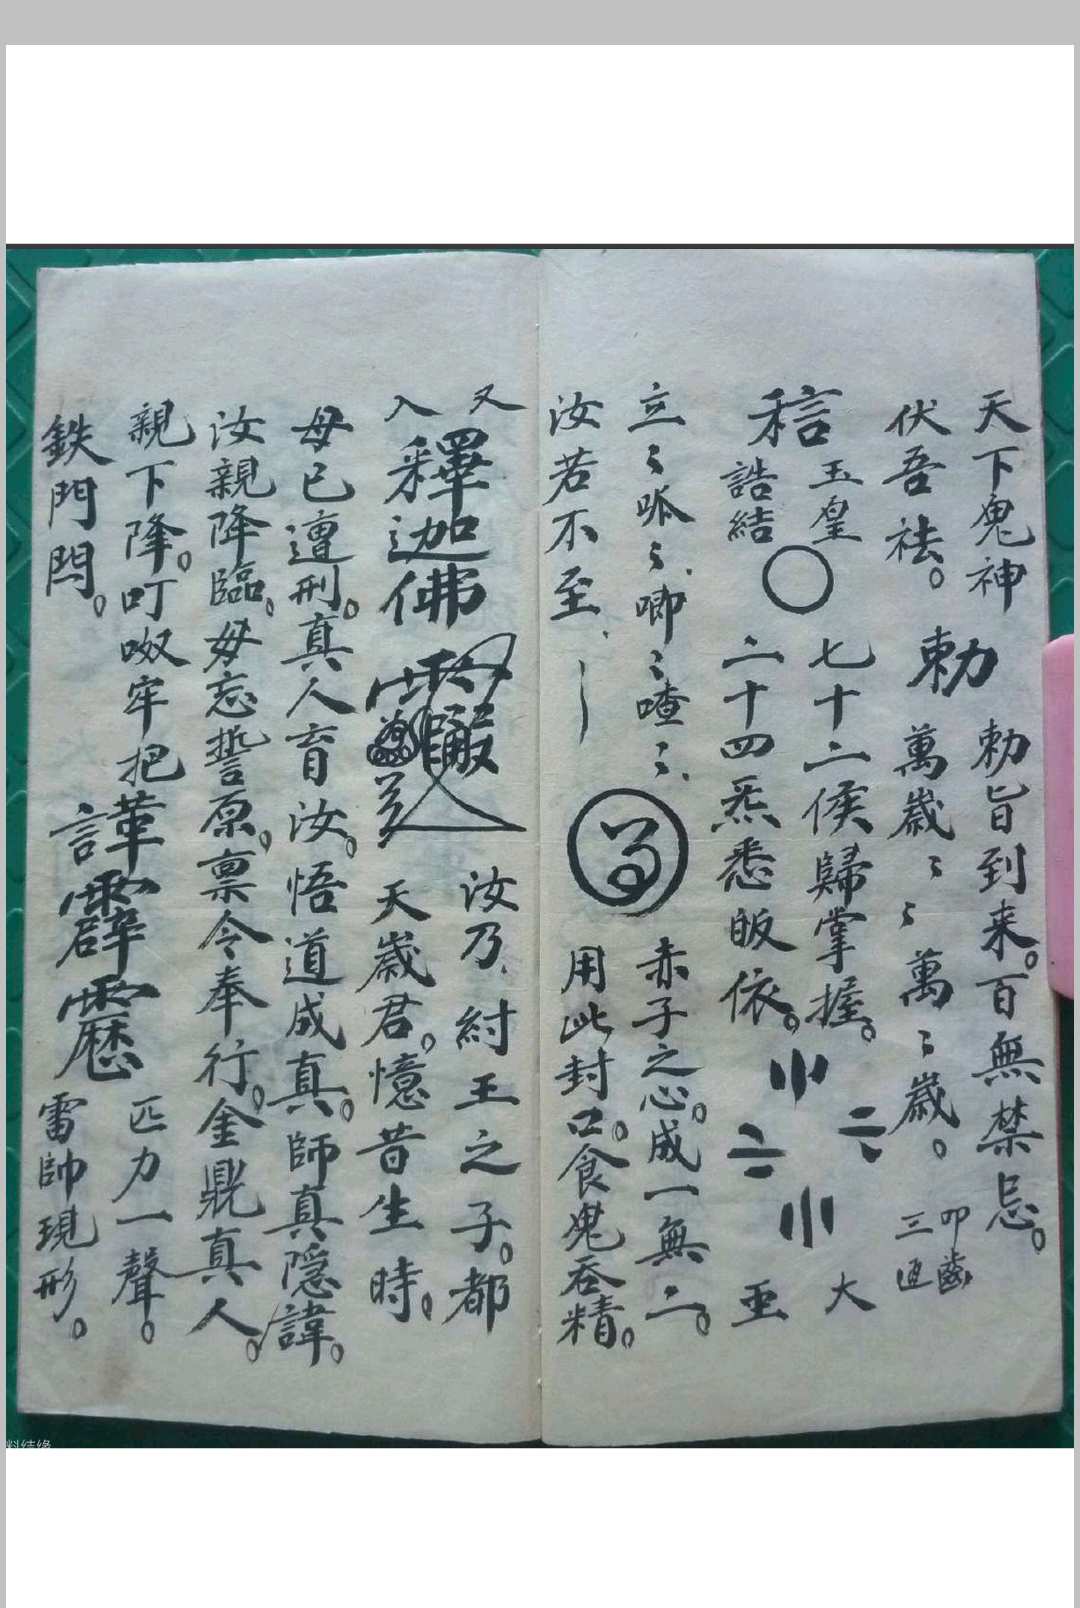 天下鬼神
勅
勅旨到来。百無禁忌。
伏吾祛。
萬歲〻〻萬〻歲。
叩齒
三通
玉皇
誥結
七十二候歸掌握。
二十四炁悉皈依。
大
亜
立〻呱〻唧〻喳〻
赤子之心。成一無二。
汝若不至、
用此封口。食鬼吞精。
又
入
釋迦佛
汝乃紂王之子。都
天歲君。憶昔生時。
母已遭刑。真人育汝。悟道成真。師真隱諱。
汝親降臨。毋忘誓原。禀令奉行。金鼎真人。
親下降。叮呶牢把
鉄門閂。
霹靂
匹力一聲。
雷帥現形。
料结缘